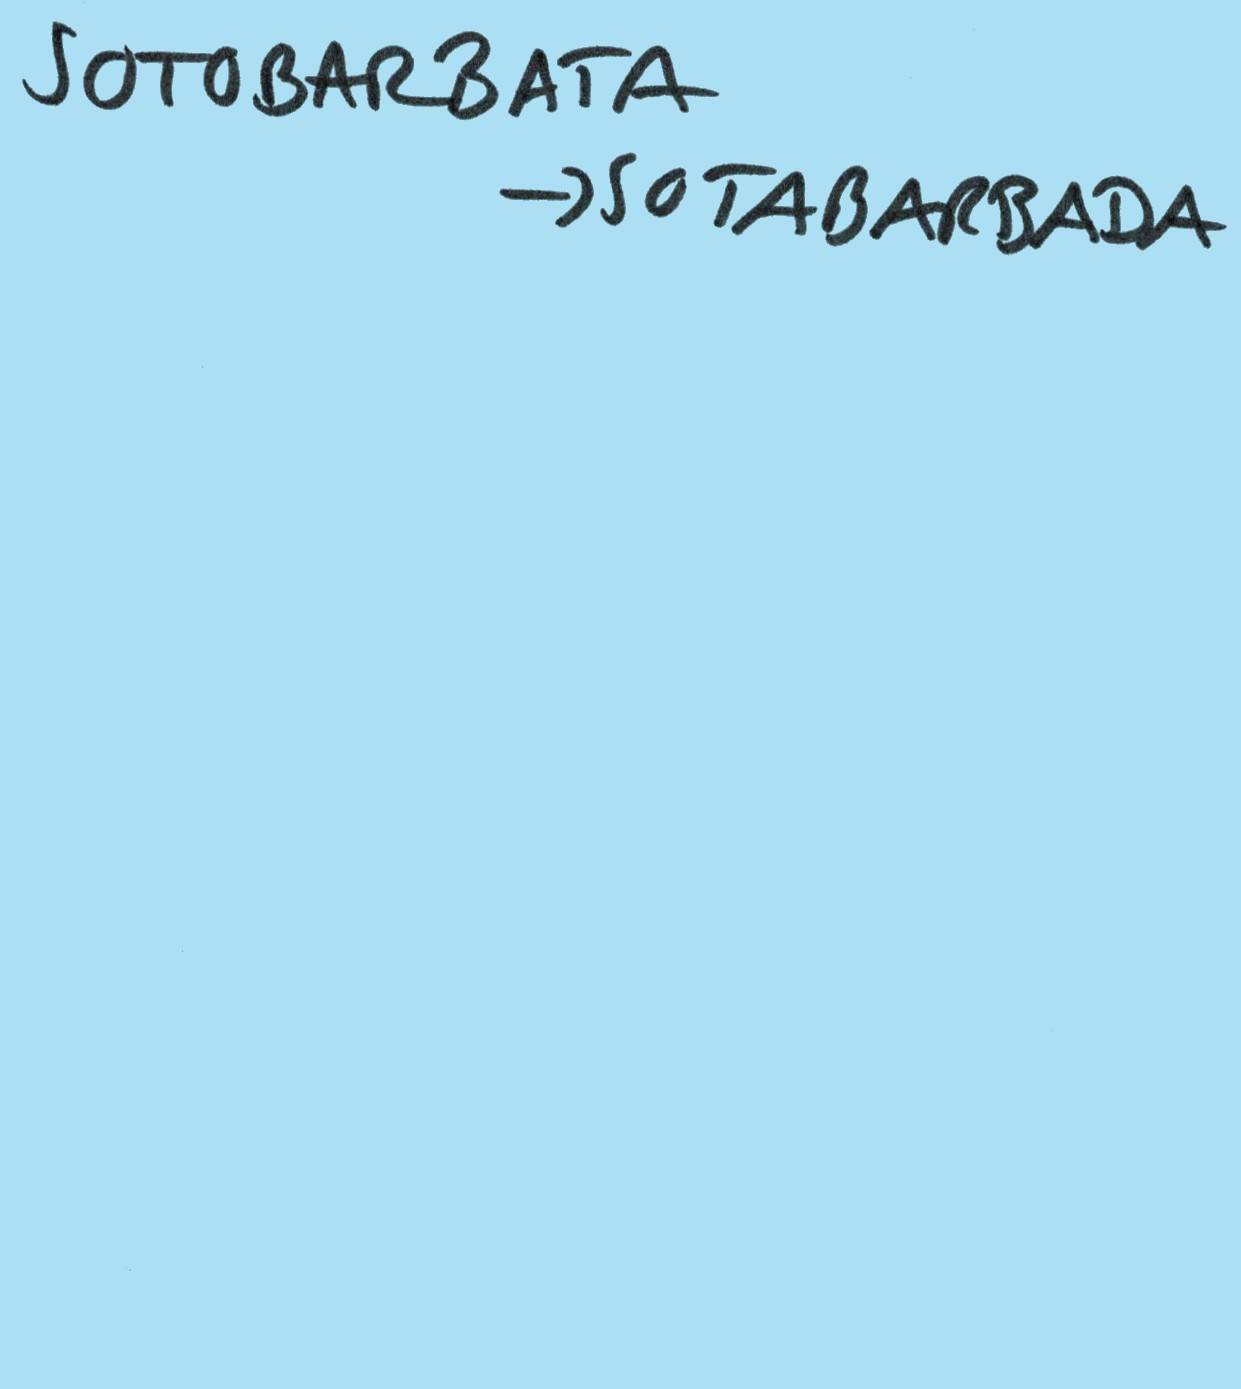 SOTOBARBATA
→SOTABARBADA